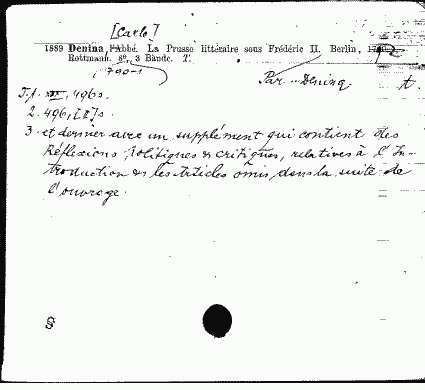 [Carlo]
1889 Denina, l'Abbé. La Prusse littéraire sous Frédéric II. Berlin,
Rottmann. 8º, 3 Bände. T.
1790-1
Par Denina t.
T.1. XII, 496 s.
2. 496, [2] s
3. et dernier avec un supplément qui contient des
Réflexions politiques & critiques, relatives à l'In-
troduction & les Articles omis dans la suite de
l'ouvrage.